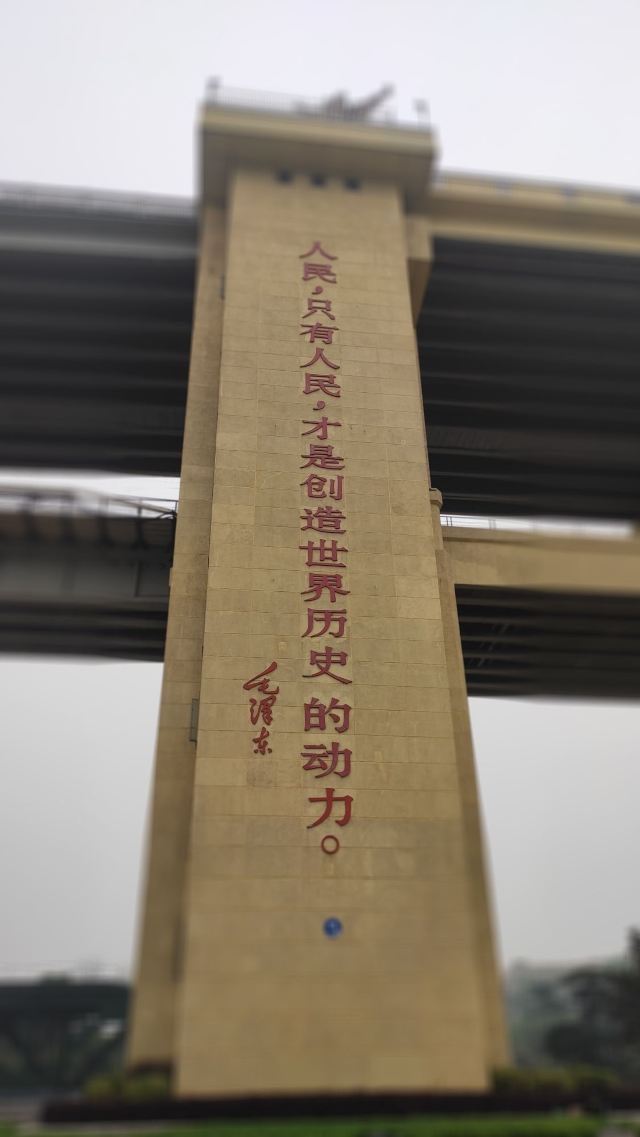 人民，只有人民，才是创造世界历史的动力。
毛泽东